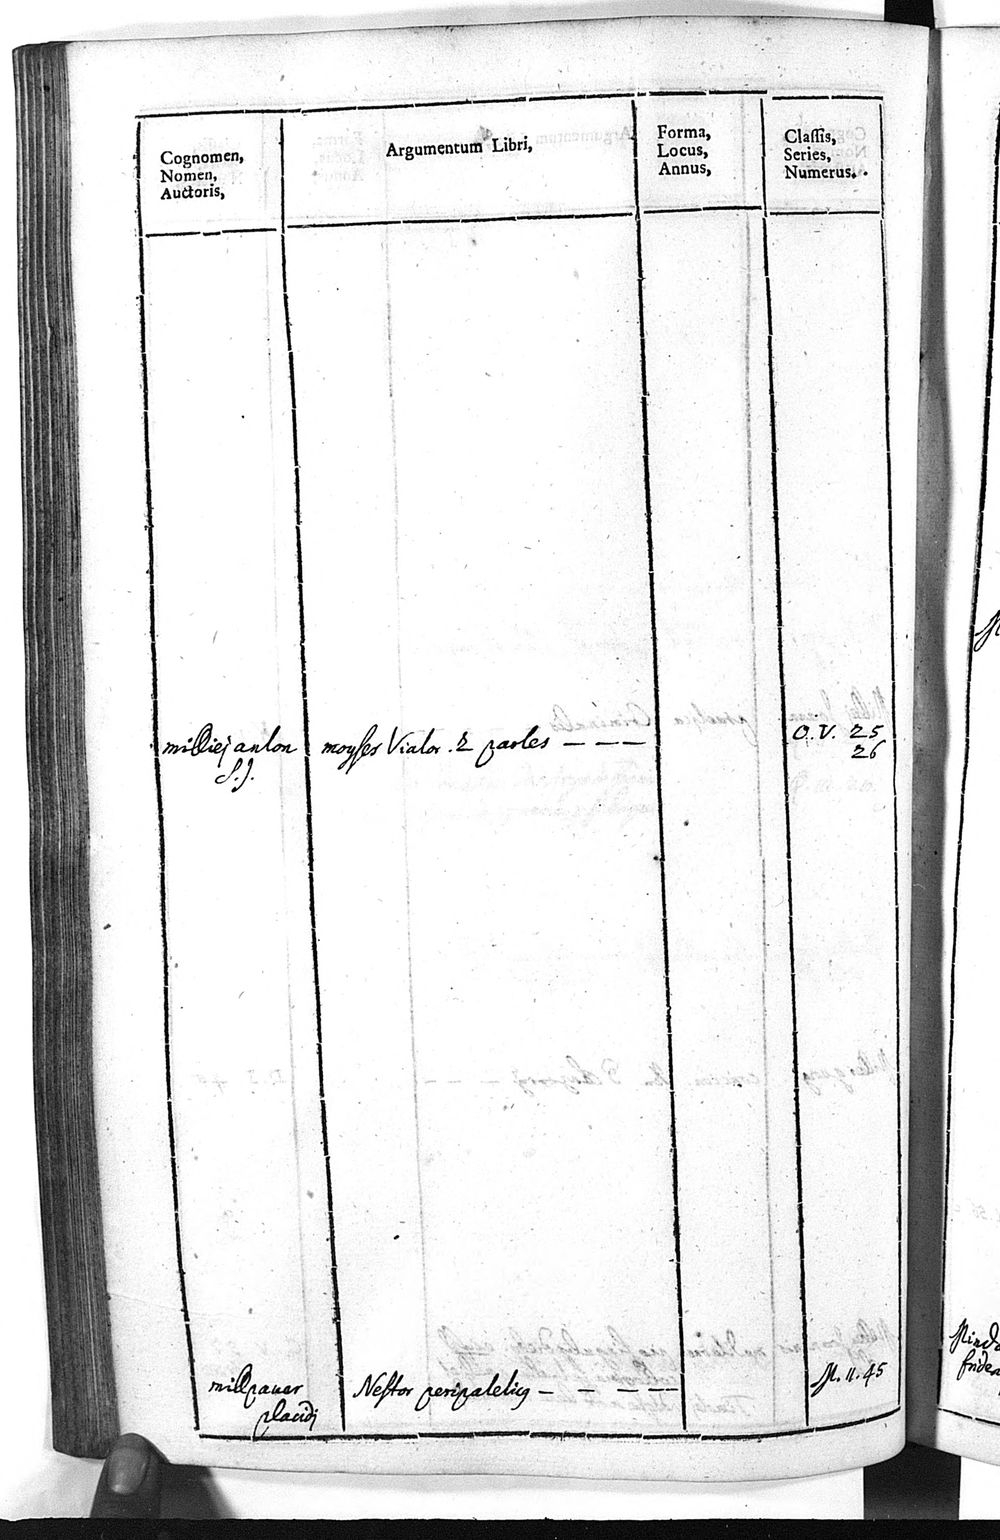 Cognomen,
Nomen,
Auctoris,
Argumentum Libri,
Forma,
Locus,
Annus,
Classis,
Series,
Numerus.
milliej anton
S.J.
moyses Viator. 2 partes — — —
O. V. 25
26
millpauer
placidi
Nestor peripateticus — — — — —
M. II. 45